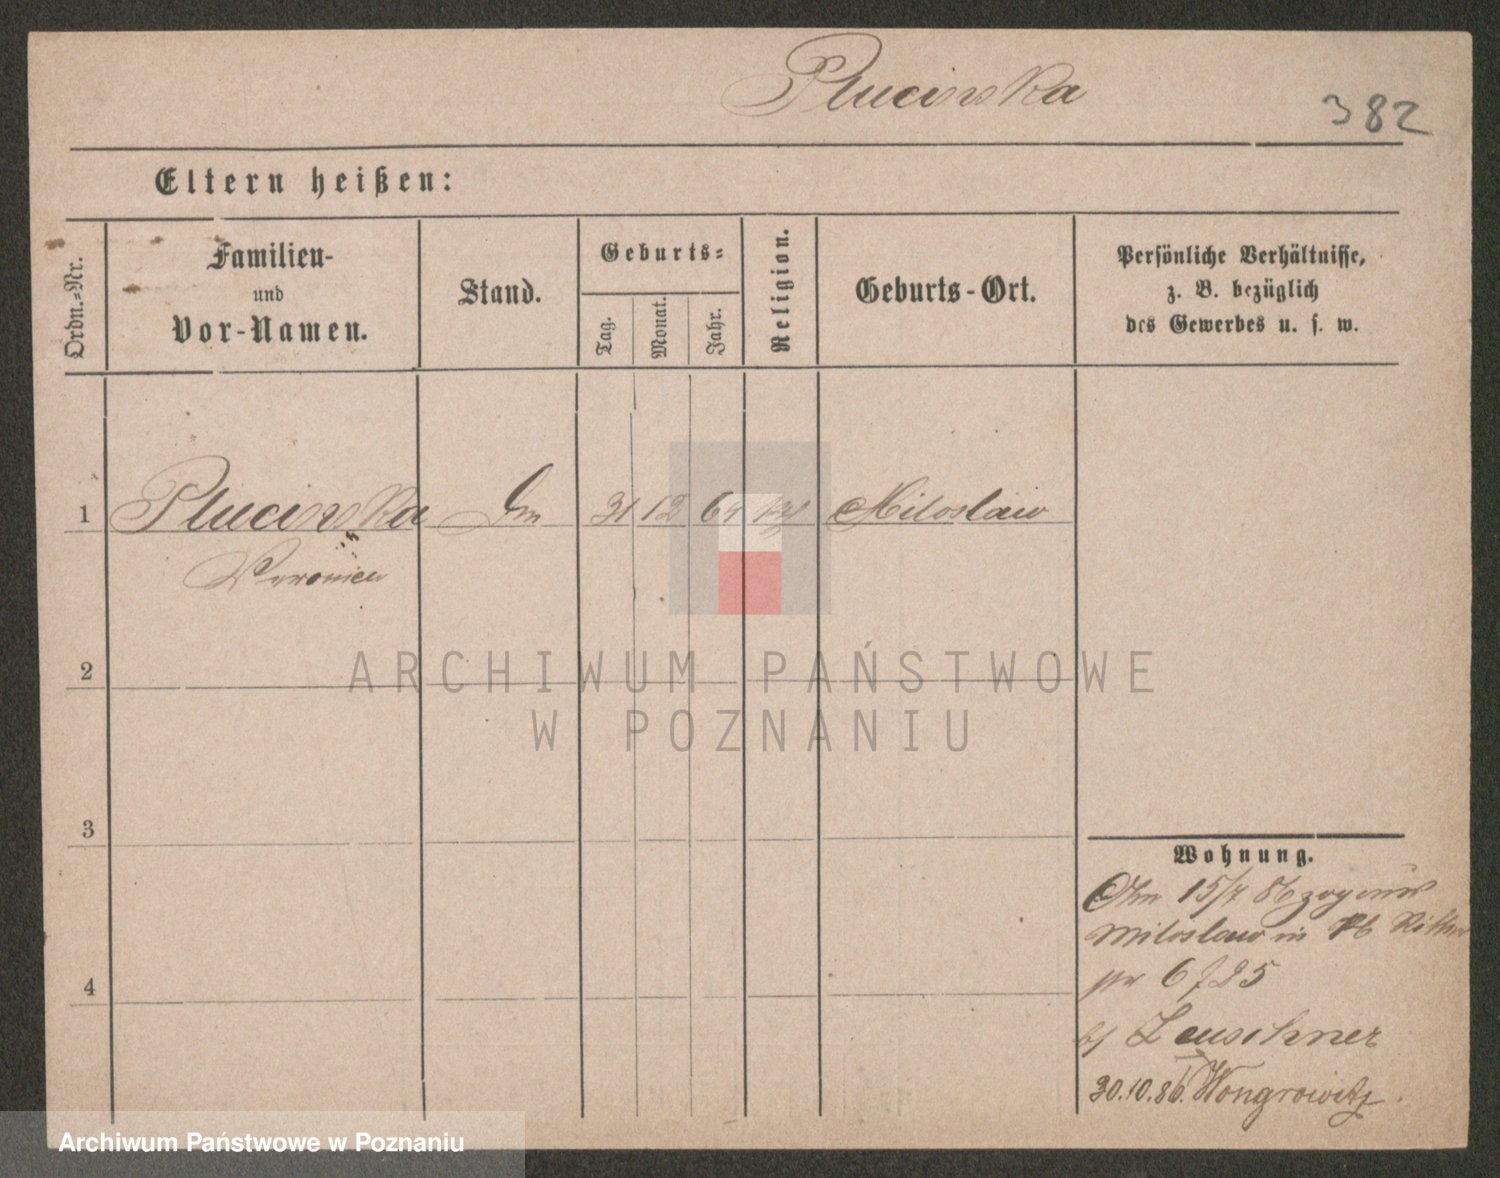 Plucinska
382
Eltern heißen:
Ordn.-Nr.
Familien-
und
Vor-Namen.
Stand.
Geburts-
Tag.
Monat.
Jahr.
Religion.
Geburts-Ort.
Persönliche Verhältnisse,
z. B. bezüglich
des Gewerbes u. s. w.
1 Plucinska 31 12 64 Miloslaw
Veronica
2
3
4
Wohnung.
15/7 86 zog aus
Miloslaw in
6725
bj Leuschner
30.10.86. Wongrowitz.
ARCHIWUM PAŃSTWOWE
W POZNANIU
Archiwum Państwowe w Poznaniu